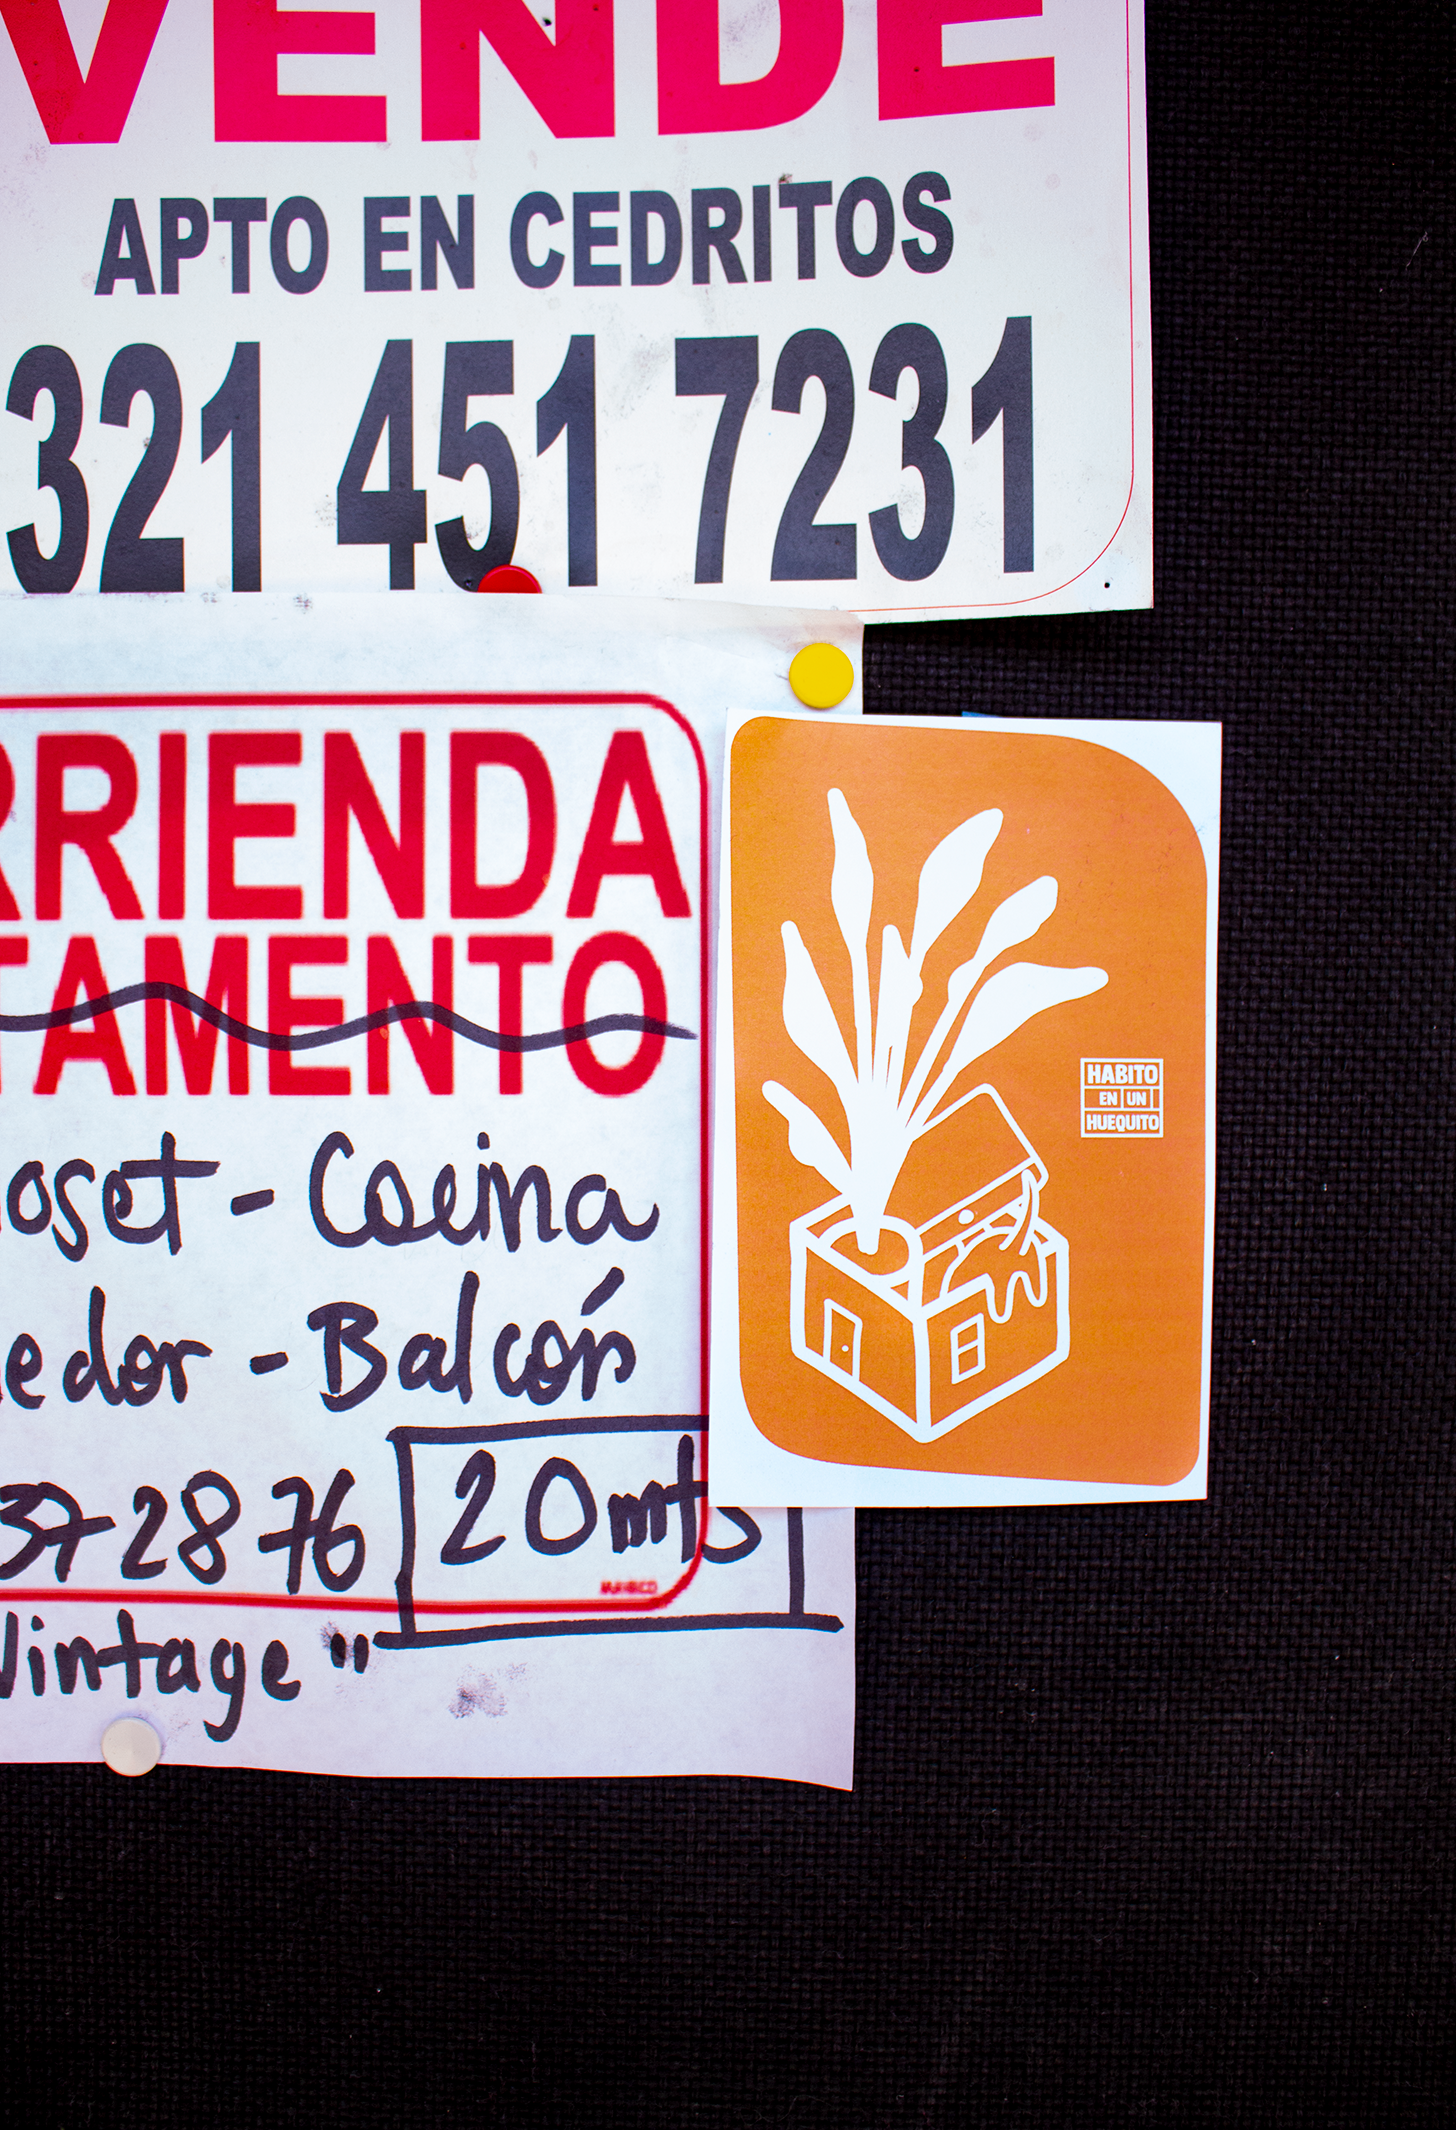 VENDE
APTO EN CEDRITOS
321 451 7231
RRIENDA
TAMENTO
loset - Cocina
edor - Balcón
37 28 76
20mts
Vintage"
HABITO
EN UN
HUEQUITO